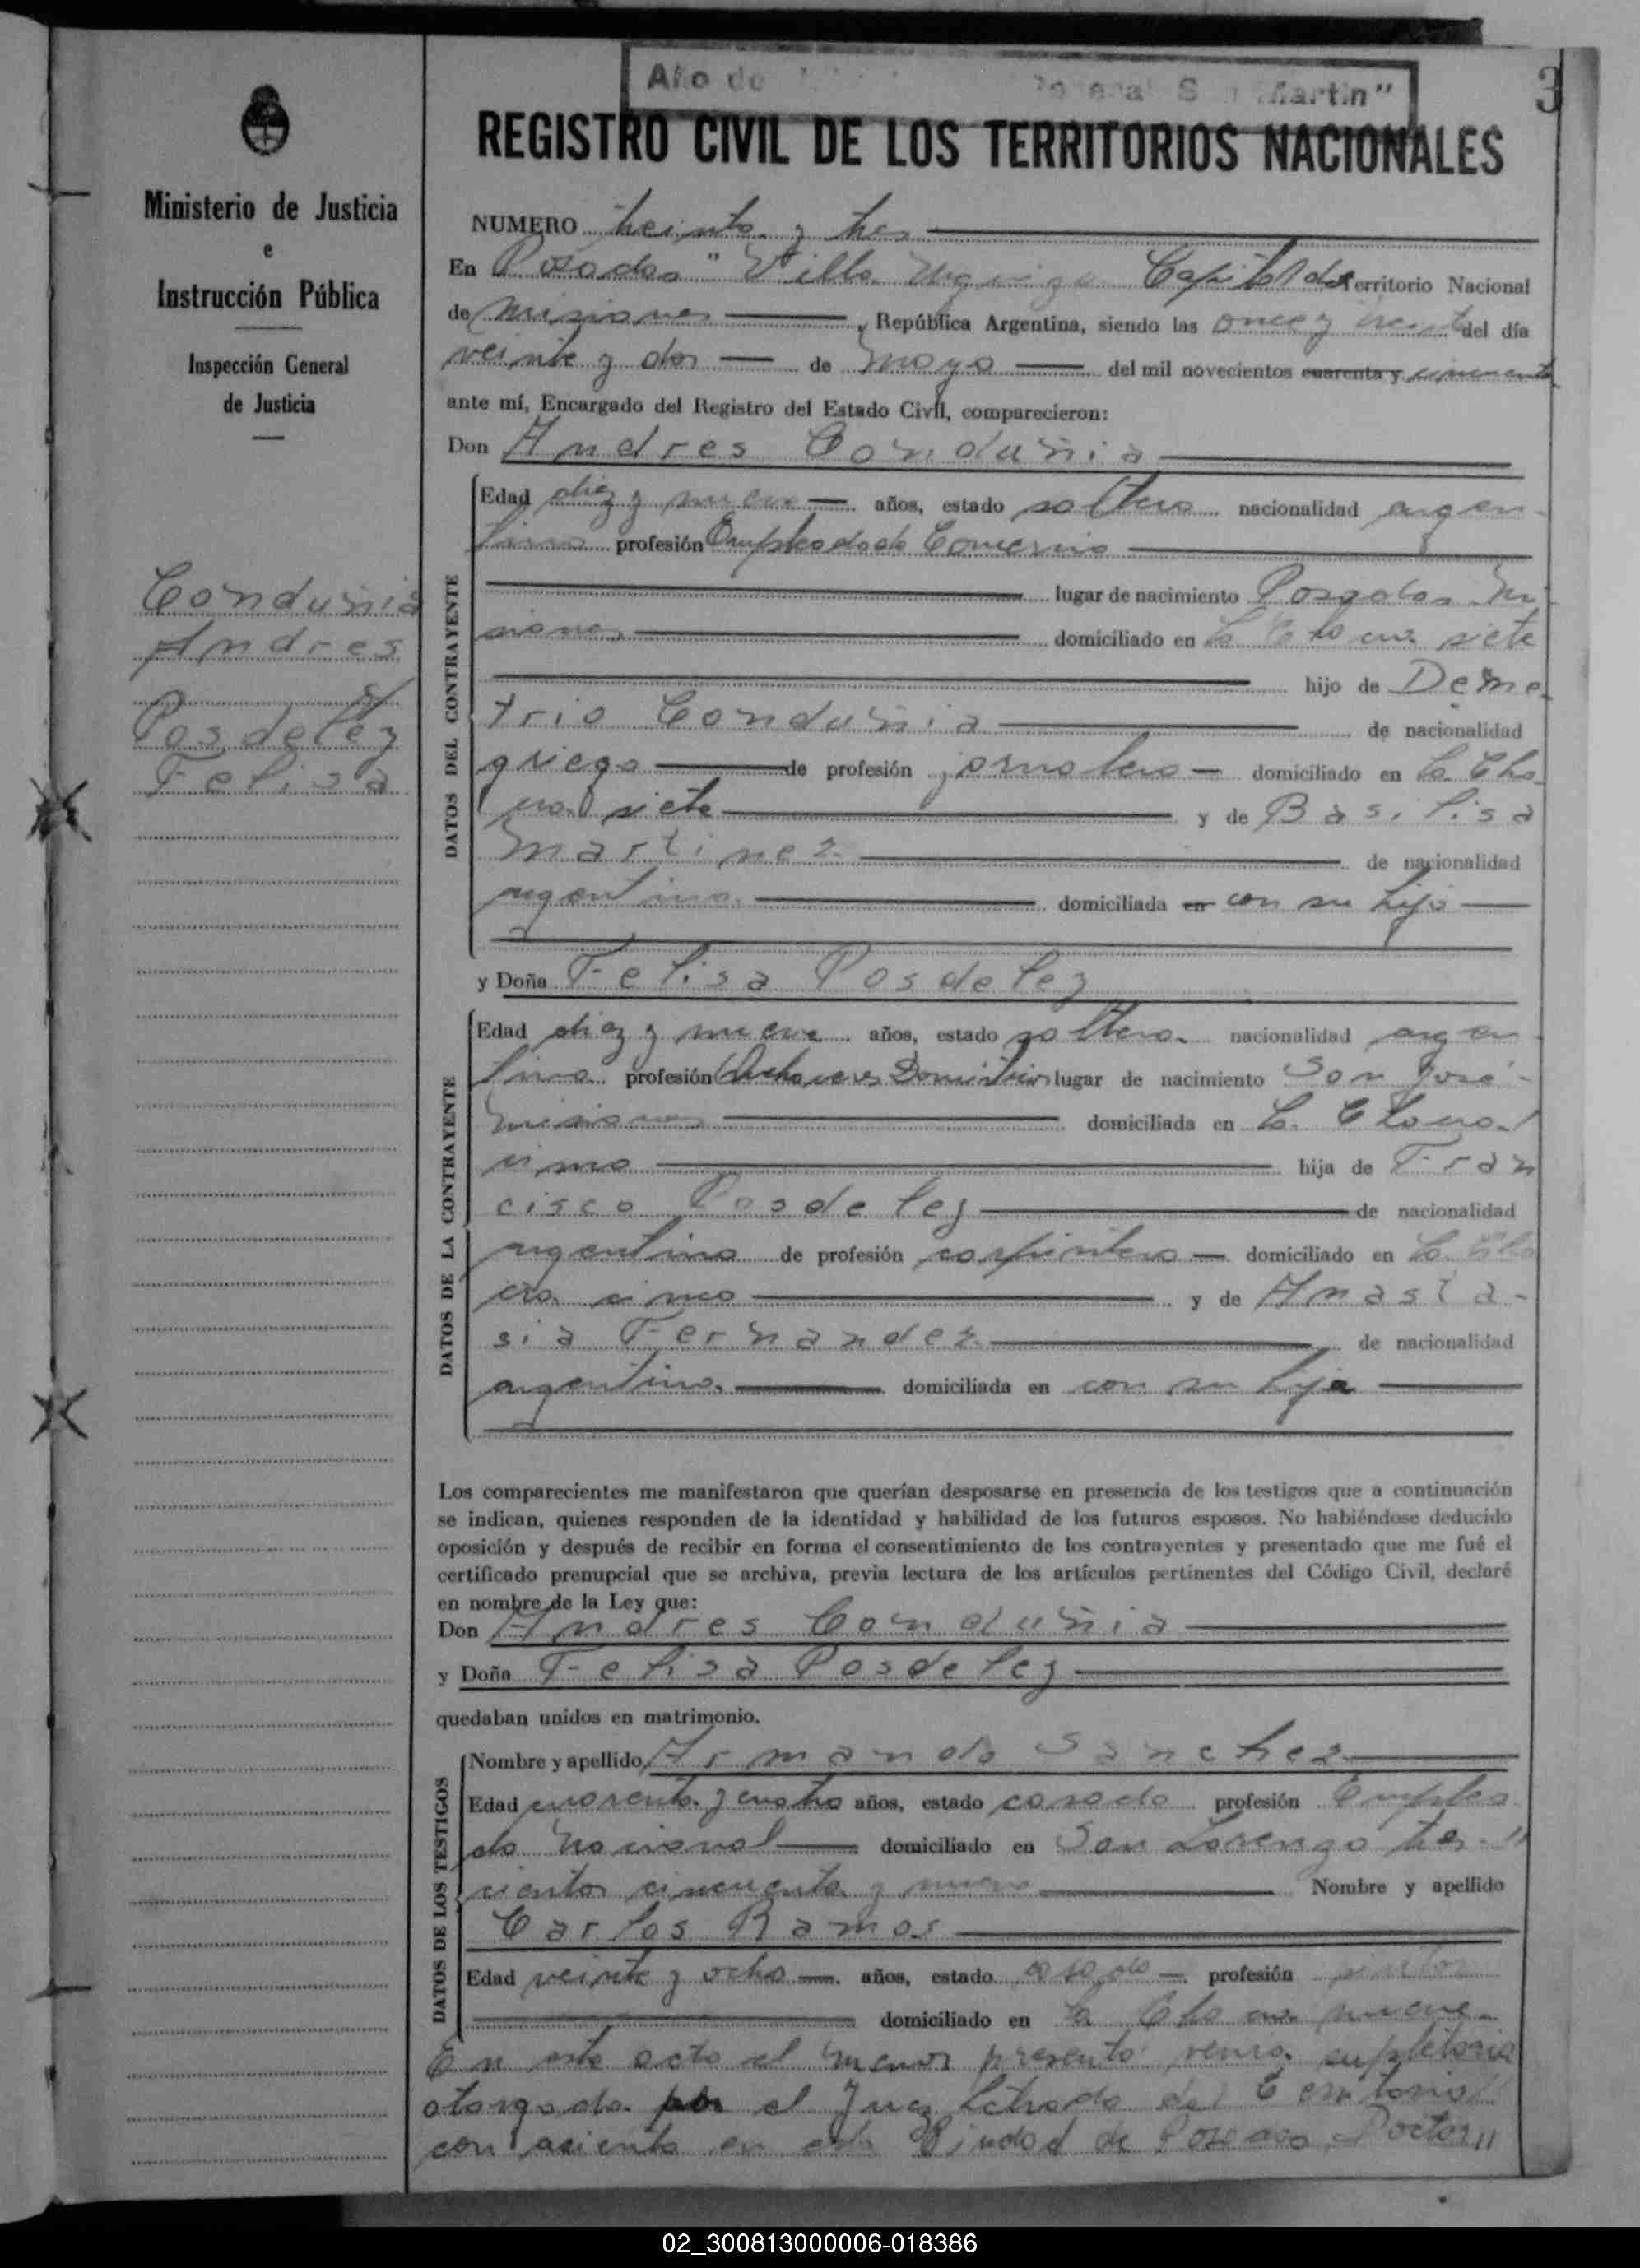 Ministerio de Justicia
e
Instrucción Pública
Inspección General
de Justicia
Conduñia
Andres
c/
Posdeley
Felisa
Año de General San Martin"
3
REGISTRO CIVIL DE LOS TERRITORIOS NACIONALES
NUMERO treinta y tres
En Posadas "Villa Urquiza Capital del Territorio Nacional
de Misiones, República Argentina, siendo las once y treinta del día
veinte y dos de Mayo del mil novecientos cuarenta y cincuenta
ante mí, Encargado del Registro del Estado Civil, comparecieron:
Don Andres Conduñia
DATOS DEL CONTRAYENTE
Edad diez y nueve años, estado soltero nacionalidad argen-
tino profesión Empleado de Comercio
lugar de nacimiento Posadas Mi-
siones domiciliado en la Chacra siete
hijo de Deme-
trio Conduñia de nacionalidad
griego de profesión jornalero domiciliado en la Cha-
cra siete y de Basilisa
Martinez de nacionalidad
argentina domiciliada en con su hijo
y Doña Felisa Posdeley
DATOS DE LA CONTRAYENTE
Edad diez y nueve años, estado soltera nacionalidad argen-
tina profesión Quehaceres Domesticos lugar de nacimiento San José-
Misiones domiciliada en la Chacra
cinco hija de Fran
cisco Posdeley de nacionalidad
argentino de profesión carpintero domiciliado en la Cha
cra cinco y de Anasta-
sia Fernandez de nacionalidad
argentina domiciliada en con su hija
Los comparecientes me manifestaron que querían desposarse en presencia de los testigos que a continuación
se indican, quienes responden de la identidad y habilidad de los futuros esposos. No habiéndose deducido
oposición y después de recibir en forma el consentimiento de los contrayentes y presentado que me fué el
certificado prenupcial que se archiva, previa lectura de los artículos pertinentes del Código Civil, declaré
en nombre de la Ley que:
Don Andres Conduñia
y Doña Felisa Posdeley
quedaban unidos en matrimonio.
DATOS DE LOS TESTIGOS
Nombre y apellido Armando Sanchez
Edad cuarenta y cuatro años, estado casado profesión Emplea
do Nacional domiciliado en San Lorenzo tres-"
cientos cincuenta y nueve Nombre y apellido
Carlos Ramos
Edad veinte y ocho años, estado casado profesión pintor
domiciliado en la Chacra nueve-
En este acto el menor presento venia supletoria
otorgada por el Juez Letrado del Territorio
con asiento en esta Ciudad de Posadas Doctor "
02_300813000006-018386